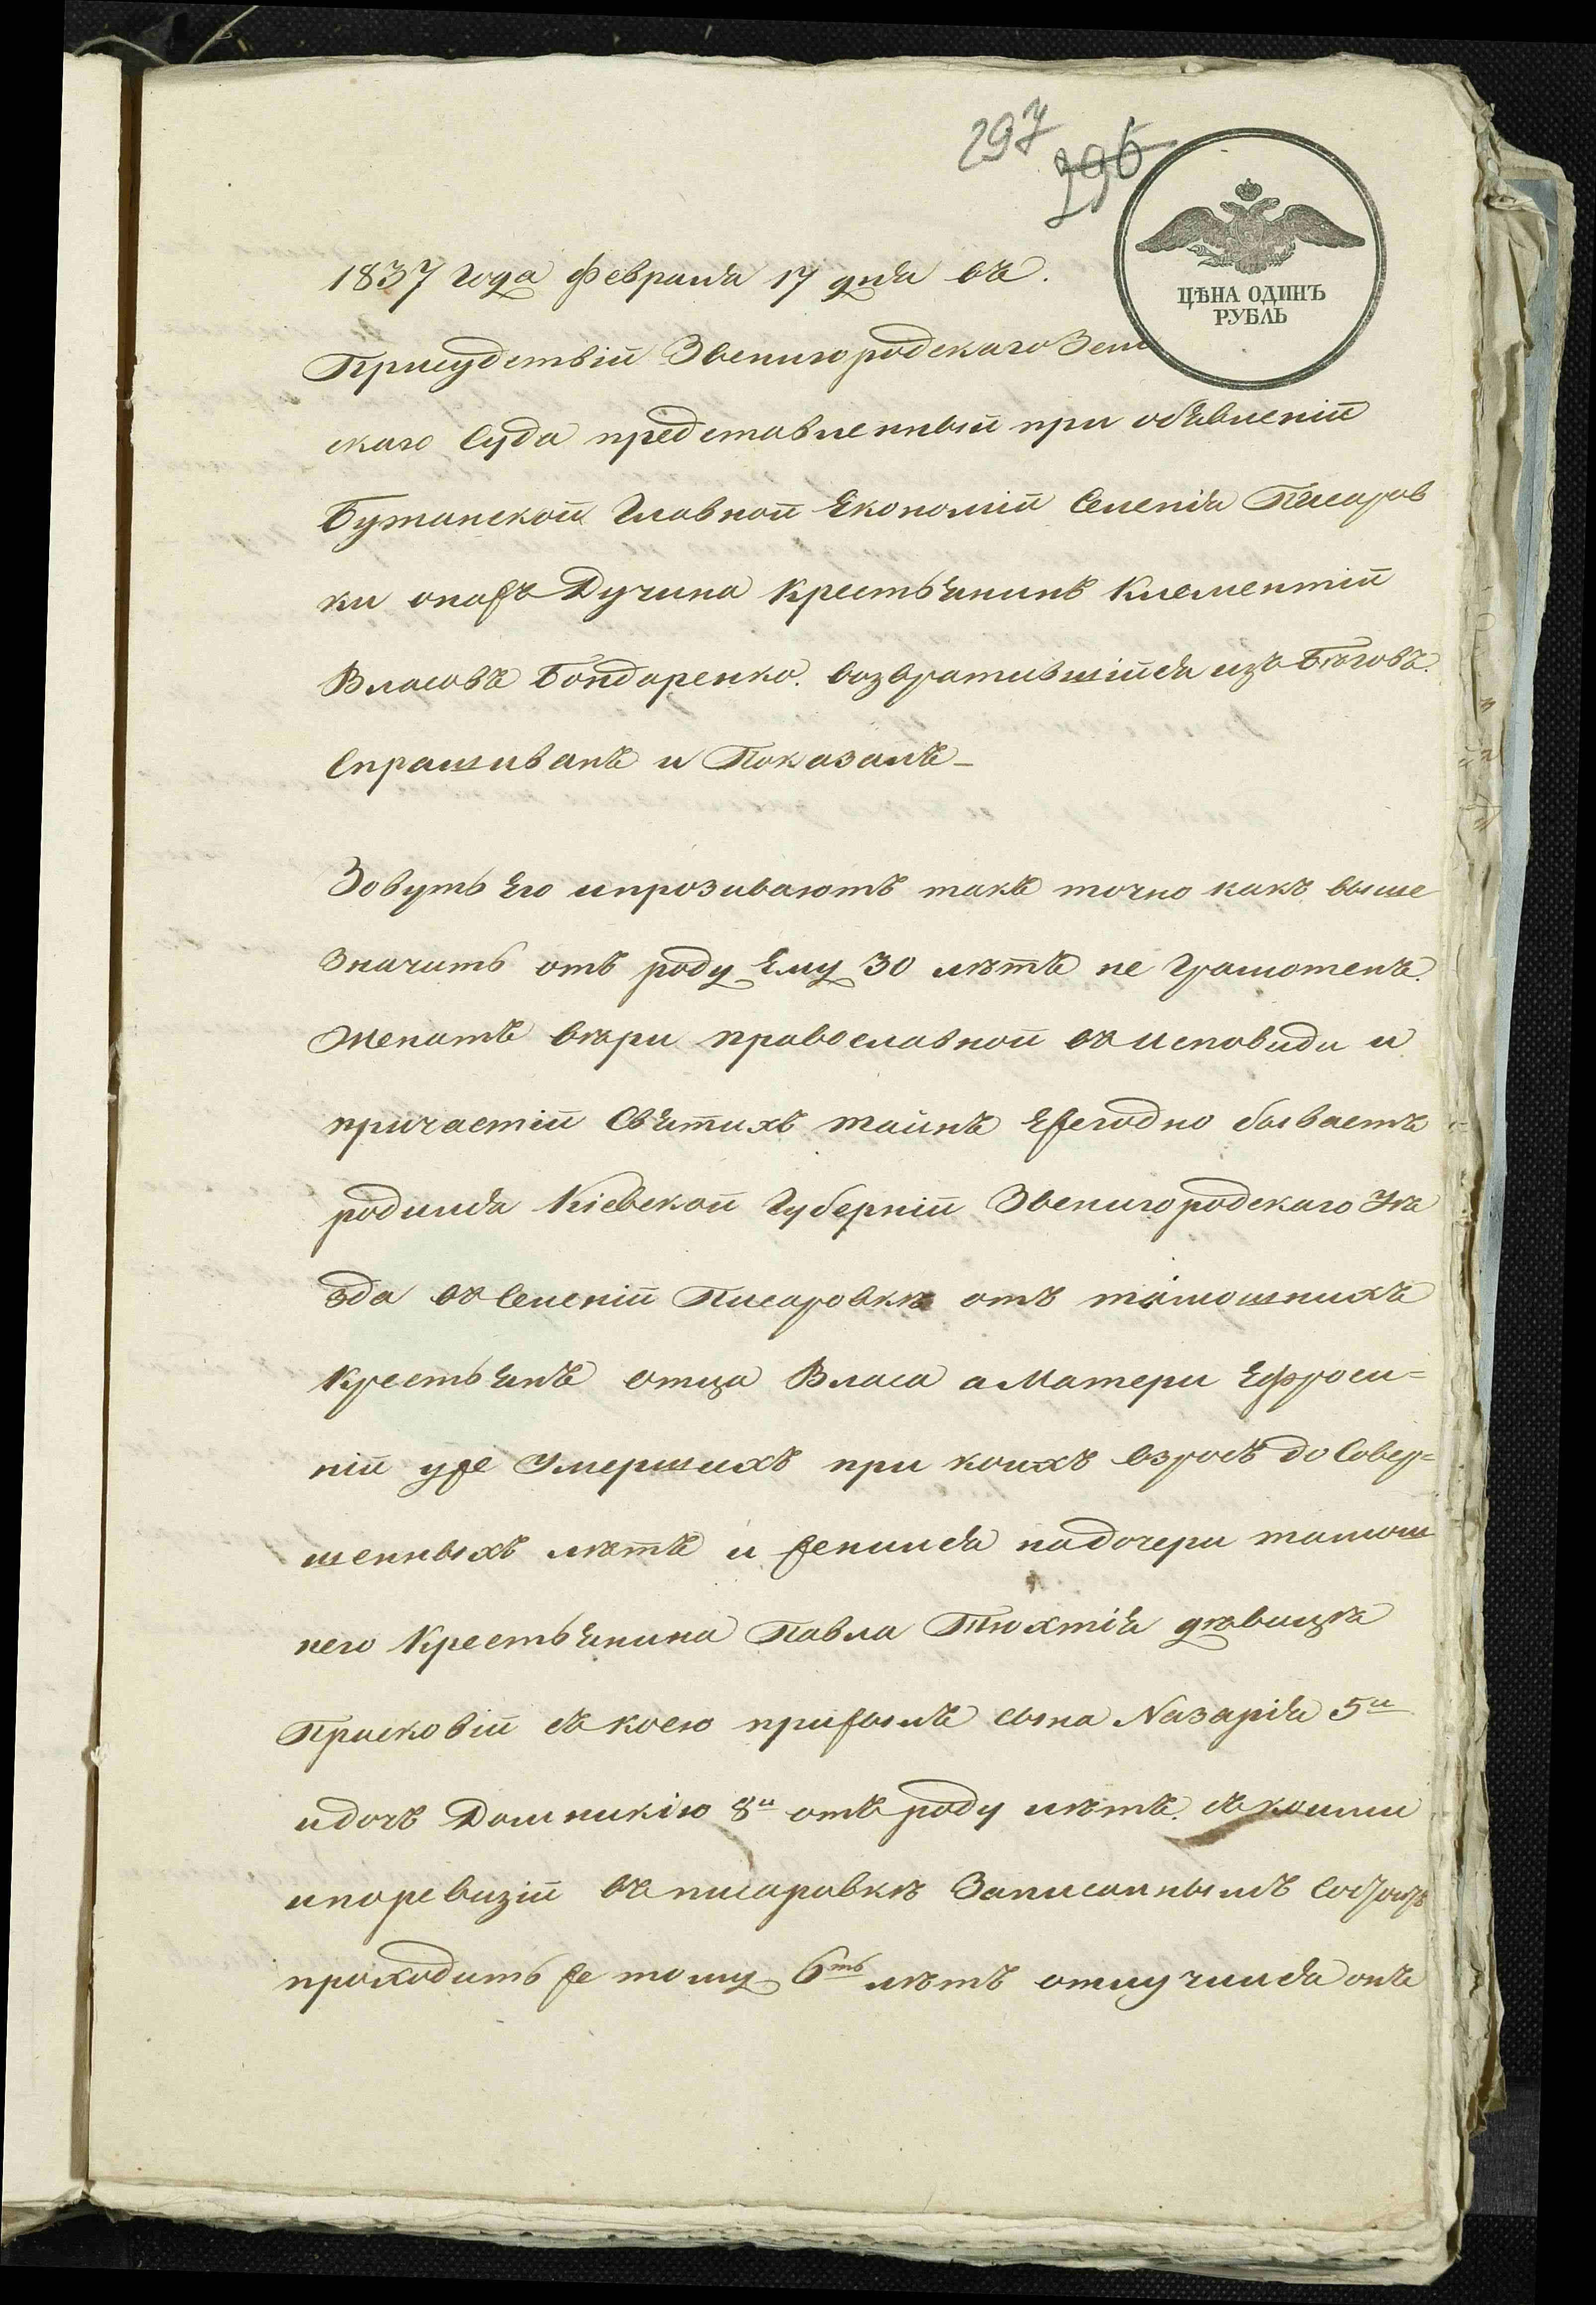 297
296
ЦѢНА ОДИНЪ
РУБЛЬ
1837 Года февраля 17 дня въ.
Присудствіи Звенигородскаго Зем
скаго Суда представленный при обявленій
Бужанской Главной Економіи Селенія Писаров
ки онажъ Дучина Крестьянинъ Клементій
Власовъ Бондаренко. возвратившійся изъ Бѣговъ
Спрашиванъ и Показалъ_
Зовуть Его ипрозивають такъ точно какъ выше
Значить отъ роду Ему 30 лѣтъ не Грамотенъ.
Женатъ вѣри православной въ исповиди и
причастіи Святихъ таинъ Ежегодно бываетъ
родился Кіевской Губерніи Звенигородскаго Уѣ
зда въ Селеніи Писаровкѣ отъ тамошнихъ
Крестьянъ отца Власа а Матери Ефроси=
ніи уже Умершихъ при коихъ взросъ до Совер=
шенныхъ лѣтъ и женился надочери тамош
него Крестьянина Павла Тюхтія дѣвицѣ
Присковіи съ коею прижылъ сына Назарія 5и
идочъ Домникію 8и отъ роду лѣтъ. съ коими
ипоревизіи въ писаровкѣ Записаннымъ состоитъ
проходить же тому 6ть лѣтъ отлучился онъ